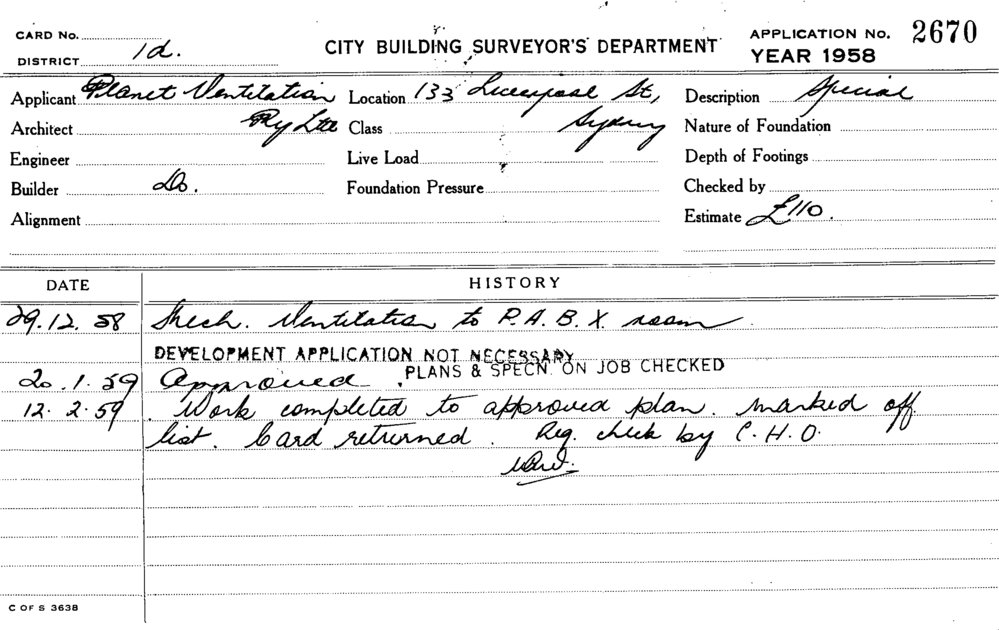 CARD No.
DISTRICT 1d.
CITY BUILDING SURVEYOR'S DEPARTMENT
APPLICATION No. 2670
YEAR 1958
Applicant Planet Ventilation Location 133 Liverpool St, Description Special
Architect Pty Ltd Class Sydney Nature of Foundation
Engineer Live Load Depth of Footings
Builder Do. Foundation Pressure Checked by
Alignment Estimate £110.
DATE HISTORY
29.12.58 Mech. Ventilation to P.A.B.X. room
DEVELOPMENT APPLICATION NOT NECESSARY
PLANS & SPECN. ON JOB CHECKED
20.1.59 Approved.
12.2.59 Work completed to approved plan. Marked off
list. Card returned. Reg. check by C.H.O.
C OF S 3638